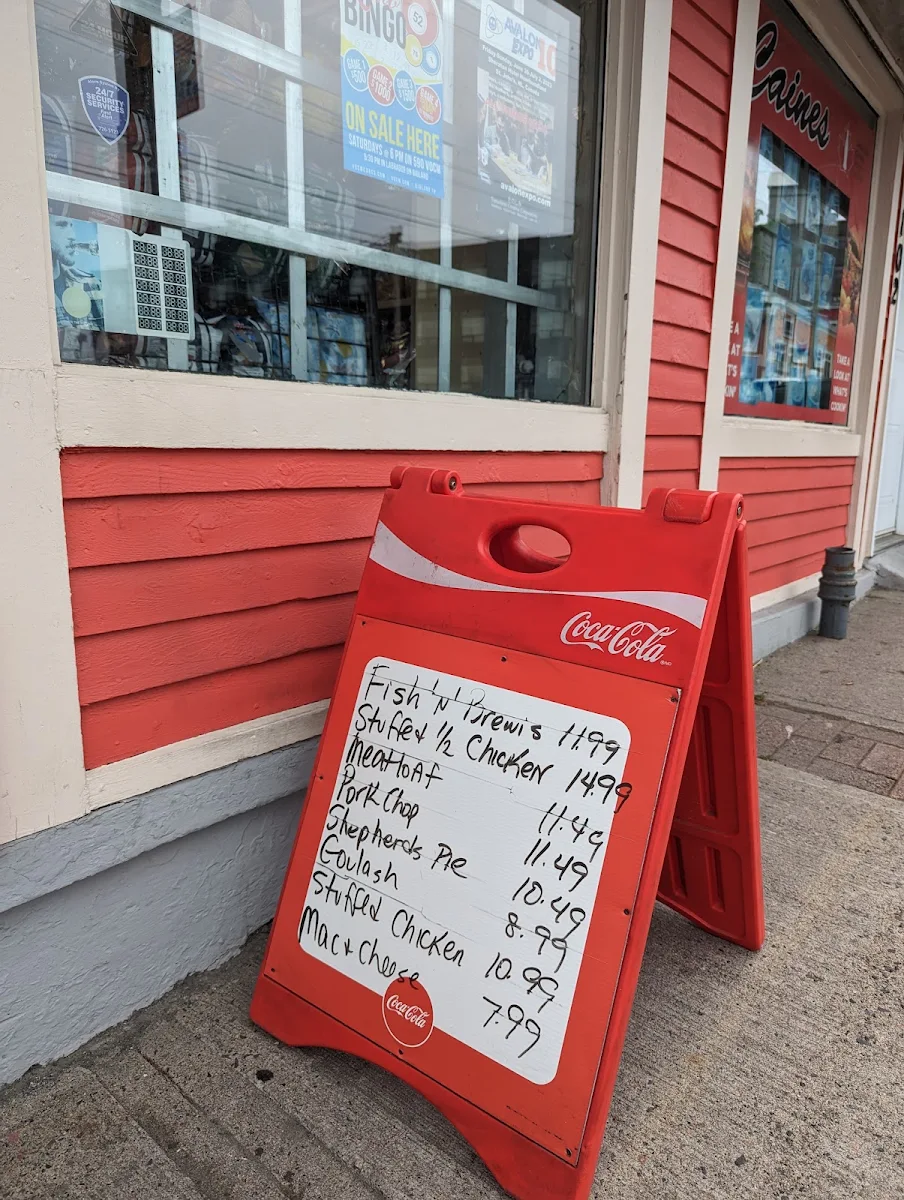 BINGO
52
GAME 1
$500
ON SALE HERE
SATURDAYS @ 6 PM ON 590 VOCM
AVALON EXPO
avalonexpo.com
24/7
SECURITY
SERVICES
Caines
TAKE A
LOOK AT
WHAT'S
COOKIN'
Coca-Cola
Fish 'N' Brewis 11.99
Stuffed 1/2 Chicken 1499
Meatloaf 11.49
Pork Chop 11.49
Shepherds Pie 10.49
Goulash 8.99
Stuffed Chicken 10.99
Mac + Cheese 7.99
Coca-Cola